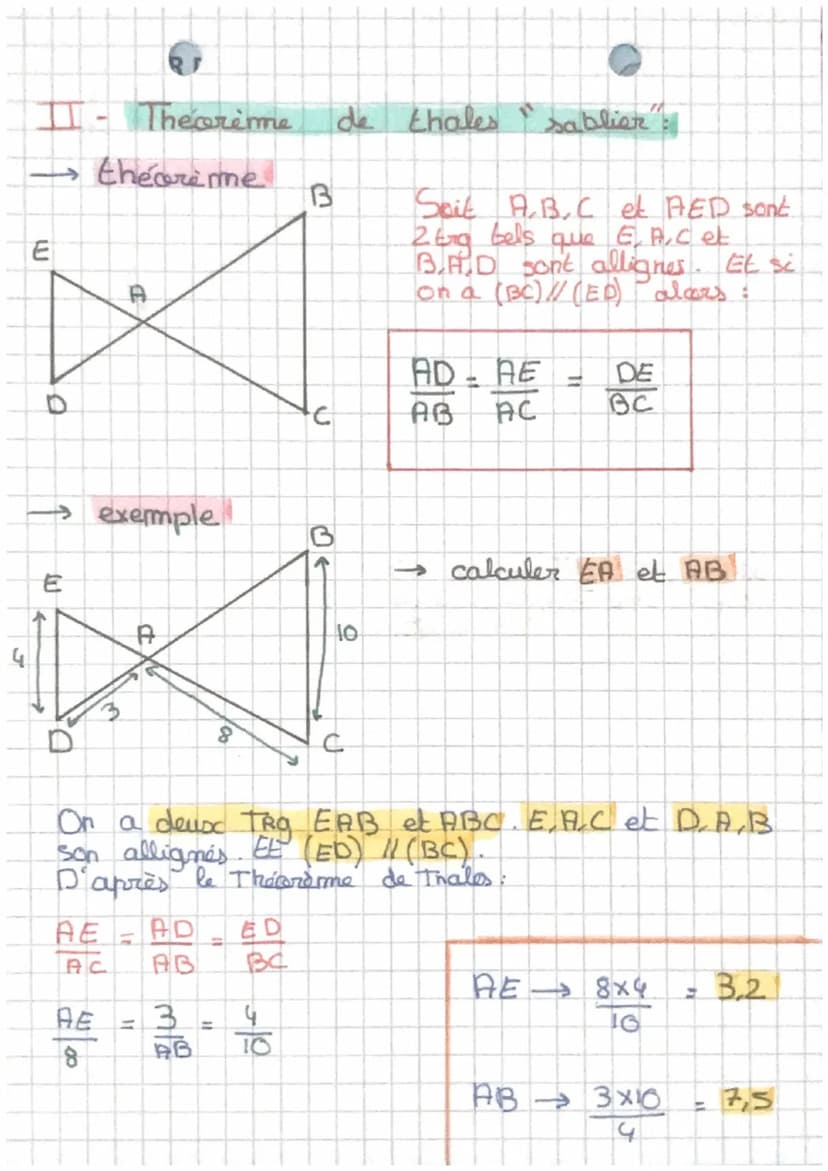 II - Théorème de thales "sablier":
→ théorème
B
E
A
D
C
Soit A,B,C et AED sont
2 trg tels que E,A,C et
B,A,D sont allignes. Et si
on a (BC)//(ED) alors :
AD/AB = AE/AC = DE/BC
→ exemple
B
E
A
4
10
3
8
D
C
→ calculer EA et AB
On a deux TRg EAB et ABC. E,A,C et D,A,B
son allignés. Et (ED) // (BC).
D'après le Théorème de Thales :
AE/AC = AD/AB = ED/BC
AE/8 = 3/AB = 4/10
AE → 8×4/10 = 3,2
AB → 3×10/4 = 7,5